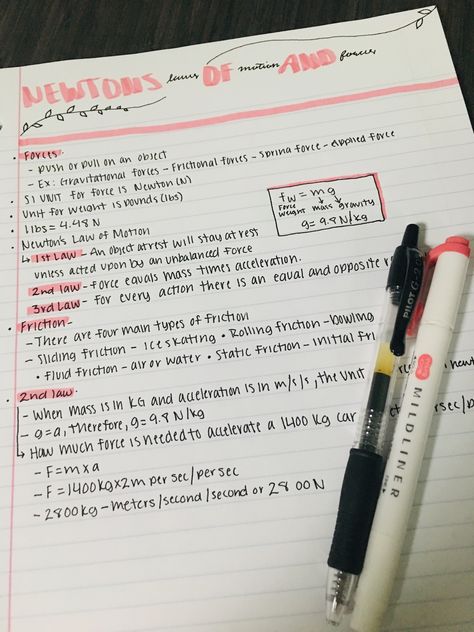 NEWTONS laws OF motion AND forces
• Forces-
- push or pull on an object
- Ex: Gravitational forces - Frictional forces - Spring force - Applied force
• SI UNIT for force is Newton (N)
• Unit for weight is pounds (lbs)
• 1 lbs = 4.48 N
• Newton's Law of Motion
↳ 1st Law - An object at rest will stay at rest
unless acted upon by an unbalanced force
2nd law - Force equals mass times acceleration.
3rd Law - for every action there is an equal and opposite
Fw = mg
Force mass gravity
weight
g = 9.8 N/kg
• Friction -
- There are four main types of friction
- Sliding friction - ice skating • Rolling friction - bowling
• Fluid friction - air or water • Static friction - initial
• 2nd law-
- When mass is in KG and acceleration is in m/s/s, the unit
- g=a, therefore, g= 9.8 N/kg
↳ How much force is needed to accelerate a 1400 kg car
- F=m×a
- F= 1400kg×2m per sec/per sec
- 2800kg - meters/second/second or 2800N
PILOT G-2
MILDLINER